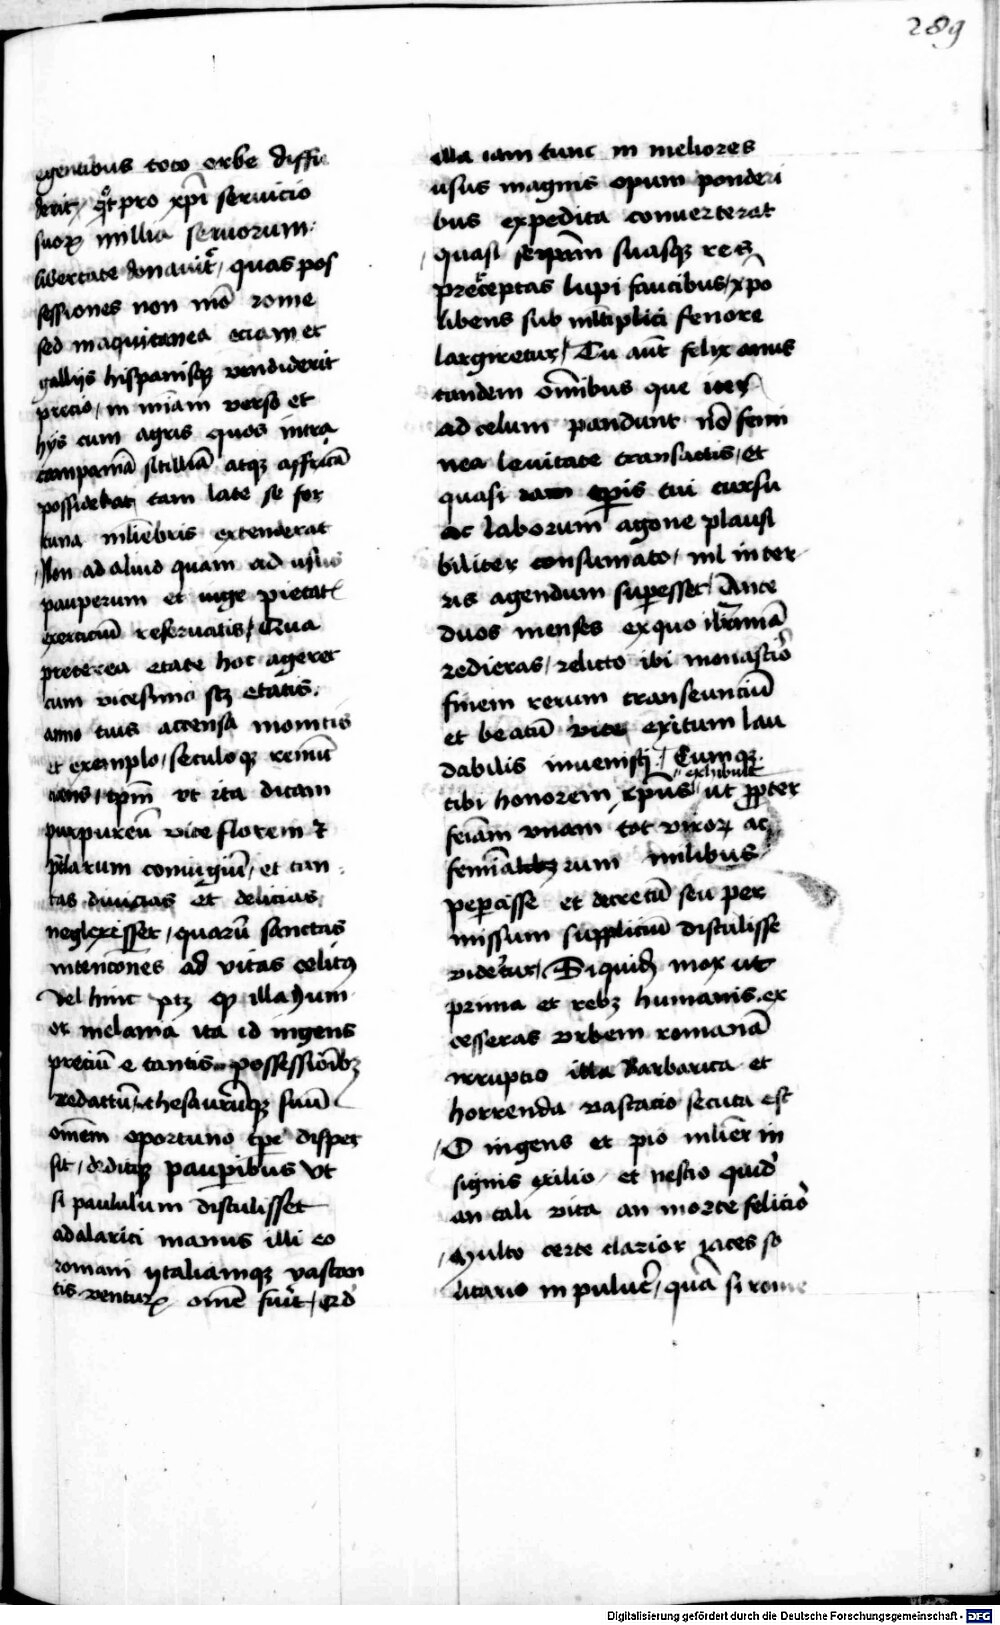 289
egentibus toto orbe diffu
derit / qͦt pro xp̄i seruicio
suoꝝ millia seruorum
libertate donauit̄ / quas pos
sessiones non mō rome
sed in aquitanea eciam et
gallijs hispanisqꝫ vendiderit
precio / in miam̄ verso et
hys cum agris quos intra
campaniā siciliā atqꝫ affricā
possidebat tam late se for
tuna mliebris extenderat
/ Non ad aliud quam ad usus
pauperum et iuge pietatꝭ
exerciciū reseruatis / Qua
preterea etate hoc ageret
cum vicesimo scꝫ etatis
anno tuis accensa monitis
et exemplo / seculoqꝫ renūc
cians / tp̄m vt ita dicam
purpureū vite florem et
p̄larum coniugiū / et tan
tas diuicias et delicias
neglexisset / quarū sanctas
intencōnes ad vitas celitꝰ
vel hinc ptꝫ qꝫ illa hum
et melania ita id ingens
preciū e tantis possessiōibꝫ
redactū thesaurūqꝫ suū
om̄em oportuno tp̄e disper
sit / deditqꝫ pauꝑibus vt
si paululum distulisset
ad alarici manus illi eo
romam ytaliamqꝫ vastan
tis venturꝝ om̄e fuit / Qd̓
illa iam tunc in meliores
usus magnis opum ponderi
bus expedita conuerterat
quasi seip̄am suasqꝫ res
preceptas lupi faucibus / xp̄o
libens sub mltiplici fenore
largiretur / Tu aūt felix anus
tandem om̄ibus que iter
ad celum pandunt nō femi
nea leuitate transactis / et
quasi iam tꝑis tui cursu
ac laborum agone plausi
biliter consumato / nil in ter
ris agendum suꝑesset / Ante
duos menses ex quo ibi romā
redieras / relicto ibi monastꝰio
finem rerum transeunciū
et beatū vite exitum lau
dabilis inuenisti / Cumqꝫ
exhibuit
tibi honorem xp̄us ut ꝓpter
feīam vnam tot viroꝝ ac
femīarum milibus
peꝑcisse et decretū seu per
missum suppliciū distulisse
videtur / Siquidē mox ut
prima et rebꝫ humanis ex
cesseras vrbem romanā
irruptio illa barbarica et
horrenda vastacio secuta est
/ O ingens et pio mlier in
signis exilio / et nescio quid̓
an tali vita an morte felicioꝰ
/ Multo certe clarior iaces so
litario in puluꝰe / quā si rome